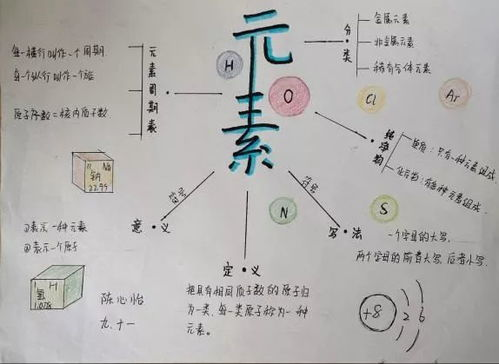 元素
分类
金属元素
非金属元素
稀有气体元素
元素周期表
每一横行叫作一个周期
每个纵行叫作一个族
原子序数=核内质子数
H
O
Cl
Ar
N
S
纯净物
单质:只有一种元素组成
化合物:有多种元素组成
11 Na
钠
22.99
符号
意·义
①表示一种元素
②表示一个原子
1 H
氢
1.008
陈心怡
九、十一
定·义
把具有相同质子数的原子归
为一类,每一类原子称为一种
元素。
符号
写·法
一个字母的大写,
两个字母的前者大写,后者小写
+8 2 6